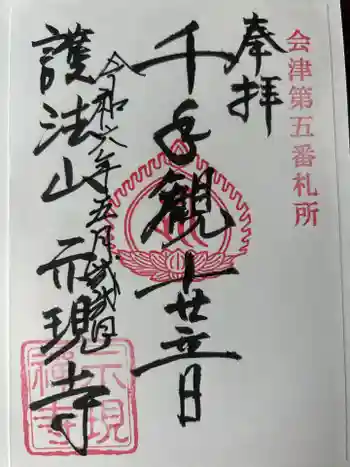 会津第五番札所
奉拝
千手観世音
令和六年五月
護法山示現寺
示現禅寺